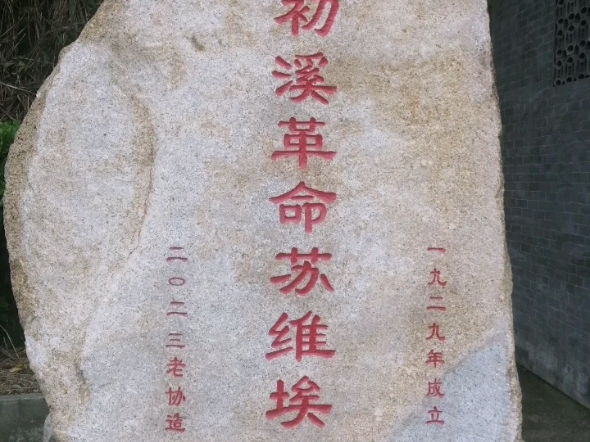 一九二九年成立
初溪革命苏维埃
二〇二三老协造